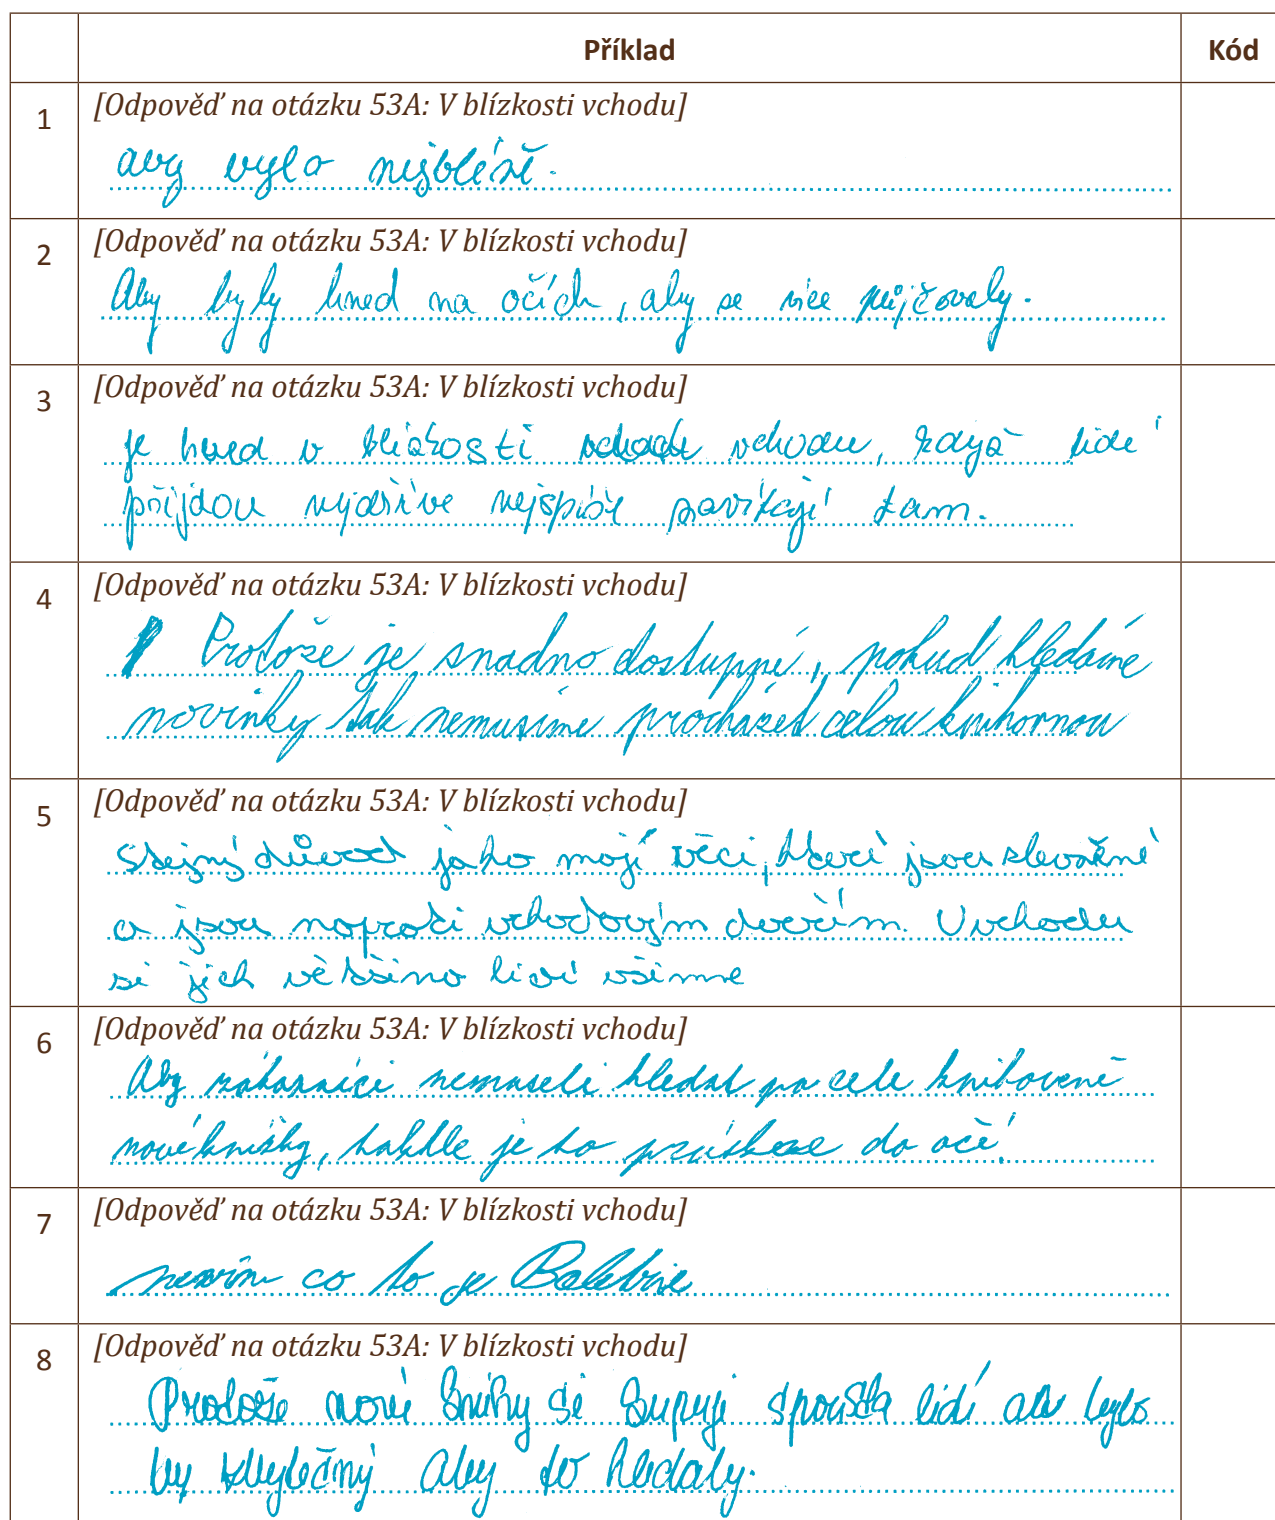 Příklad Kód
1 [Odpověď na otázku 53A: V blízkosti vchodu]
aby vyla nejblíže.
2 [Odpověď na otázku 53A: V blízkosti vchodu]
Aby byly hned na očích, aby se více půjčovaly.
3 [Odpověď na otázku 53A: V blízkosti vchodu]
je hned v blízkosti vchodu, když lidé
přijdou nejdříve nejspíše zavítají tam.
4 [Odpověď na otázku 53A: V blízkosti vchodu]
Protože je snadno dostupné, pokud hledáme
novinky tak nemusíme procházet celou knihovnou
5 [Odpověď na otázku 53A: V blízkosti vchodu]
Stejný důvod jako mají věci, které jsou slevněné
a jsou naproti vchodovým dveřím. U vchodu
si jich většina lidí všimne
6 [Odpověď na otázku 53A: V blízkosti vchodu]
Aby zákazníci nemuseli hledat po celé knihovně
nové knížky, takhle je to do očí.
7 [Odpověď na otázku 53A: V blízkosti vchodu]
nevím co to je
8 [Odpověď na otázku 53A: V blízkosti vchodu]
Protože nové knihy si kupuji spousta lidí ale bylo
by zbytečný aby to hledaly.